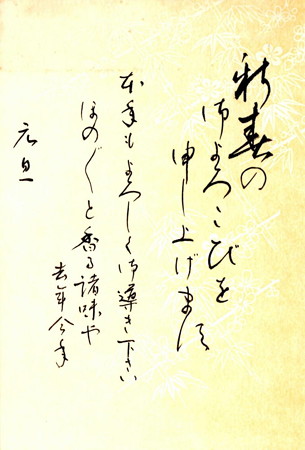 新春の
御よろこびを
申し上げます
本年もよろしく御導き下さい
ほの〴〵と香る諸味や
去年今年
元旦